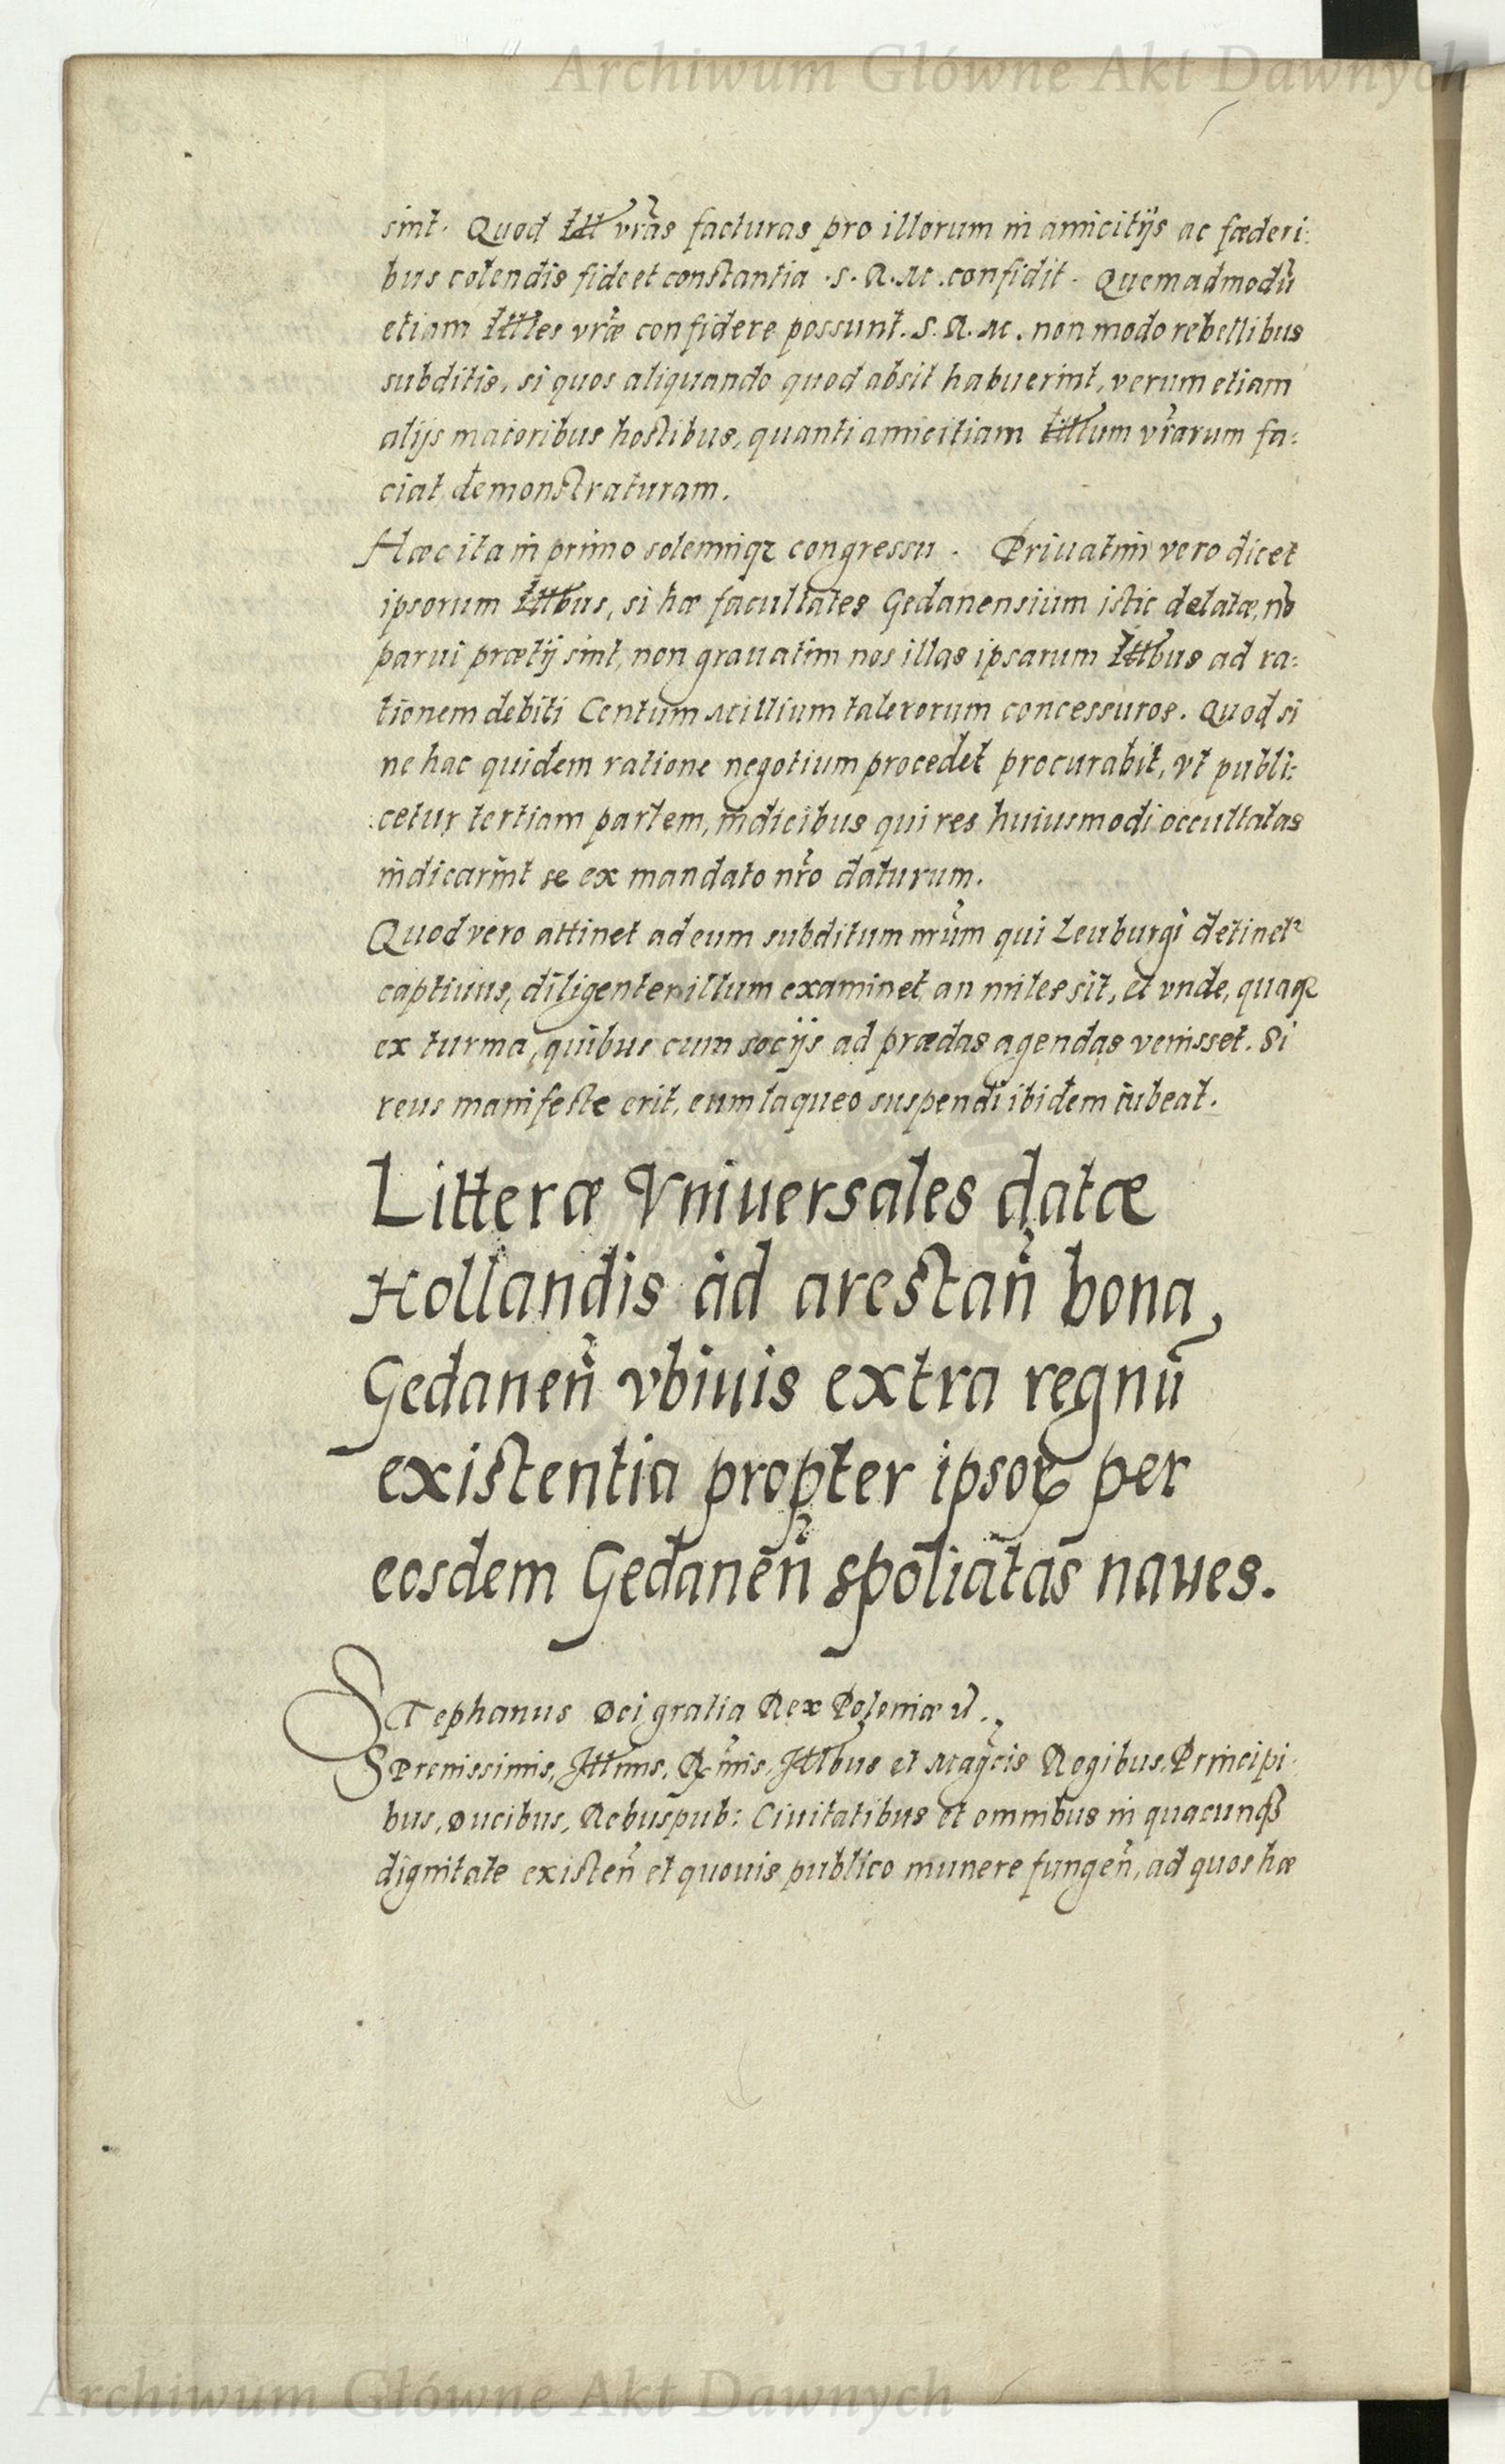 Archiwum Główne Akt Dawnych
sint. Quod Ill vr̃as facturas pro illorum in amicitijs ac fœderi:
bus colendis fide et constantia .S.R.M. confidit. Quemadmodũ
etiam Illtes vr̃æ confidere possunt. S.R.M. non modo rebellibus
subditis, si quos aliquando quod absit habuerint, verum etiam
alijs maioribus hostibus, quanti amicitiam Illum vr̃arum fa:
ciat demonstraturam.
Hæc ita in primo solemniqz congressu. Priuatim vero dicet
ipsorum Illbus, si hæ facultates Gedanensium istic delatæ, nõ
parui prætij sint, non grauatim nos illas ipsarum Illbus ad ra:
tionem debiti Centum Millium talerorum concessuros. Quod si
ne hac quidem ratione negotium procedet procurabit, vt publi:
cetur tertiam partem, indicibus qui res huiusmodi occultatas
indicarint se ex mandato nr̃o daturum.
Quod vero attinet ad eum subditum nr̃um qui Leuburgi detinetr
captiuus, diligenter illum examinet, an miles sit, et vnde, quaqz
ex turma, quibus cum socijs ad prædas agendas venisset. Si
reus manifeste erit, eum laqueo suspendi ibidem iubeat.
Litteræ Vniuersales datæ
Hollandis ad arestan̄ bona,
Gedanen̄ vbiuis extra regnū
existentia propter ipsoꝝ per
eosdem Gedanen̄ spoliatas naues.
STephanus Dei gratia Rex Poloniæ
SErenissimis, Illmis, Rmis, Illbus et Magcis Regibus, Principi
bus, Ducibus, Rebuspub: Ciuitatibus et omnibus in quacunqz
dignitate existen̄ et quouis publico munere fungen̄, ad quos hæ
Archiwum Główne Akt Dawnych